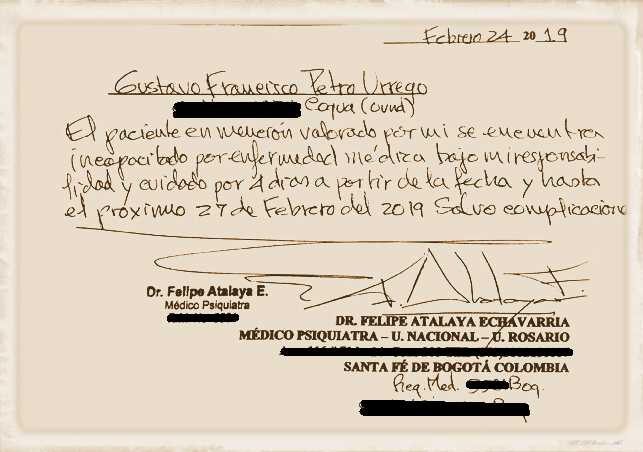 Febrero 24 2019
Gustavo Francisco Petro Urrego
Coqua (cund)
El paciente en mención valorado por mi se encuentra
incapacitado por enfermedad médica bajo mi responsabi-
lidad y cuidado por 4 días a partir de la fecha y hasta
el próximo 27 de Febrero del 2019 Salvo complicacione
Dr. Felipe Atalaya E.
Médico Psiquiatra
DR. FELIPE ATALAYA ECHAVARRIA
MÉDICO PSIQUIATRA – U. NACIONAL – U. ROSARIO
SANTA FÉ DE BOGOTÁ COLOMBIA
Reg. Med. Bog.